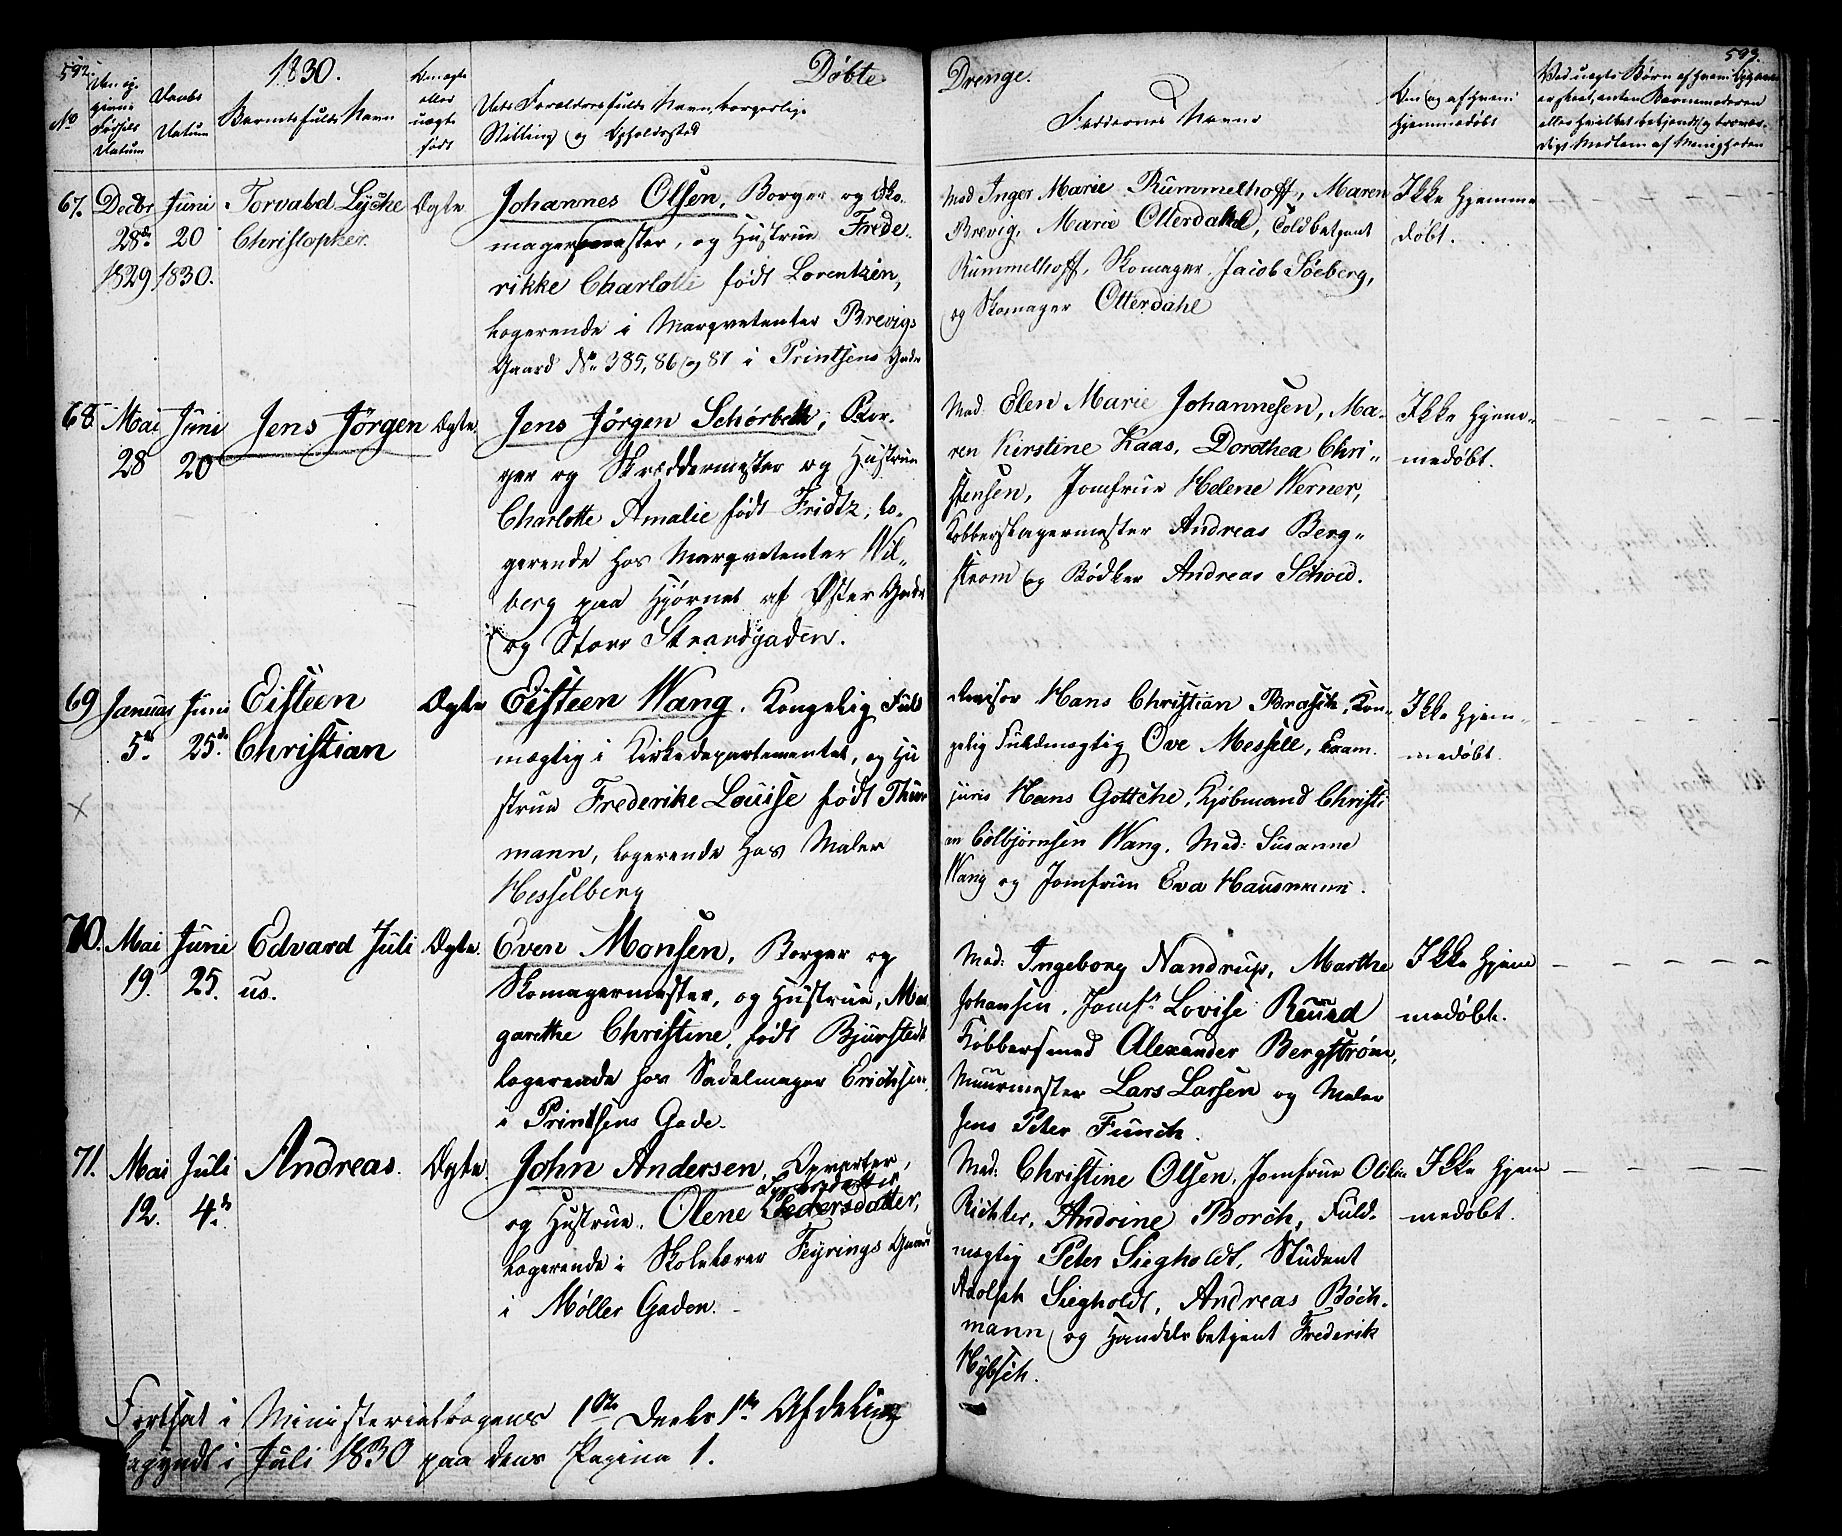 592.
1830.
Døbte
Drenge.
593.
No
Den op-
givne
Fødsels
Datum
Daabs
Datum
Barnets fulde Navn
Om ægte
eller
uægte
født
Dets Forældres fulde Navn, borgerlige
Stilling og Opholdssted
Faddernes Navne
Om og af hvem
hjemmedøbt
67. Decbr Juni Torvald Lyche Ægte
28de 20 Christopher.
1829 1830.
Johannes Olsen, Borger og Sko-
magermester, og Hustrue Frede-
rikke Charlotte født Lorentzen,
logerende i Marqvetenter Brevigs
Gaard No 385, 86 og 87 i Printsens Gade
Mad Inger Marie Rummelhoff, Maren
Brevig, Marie Otterdahl, Toldbetjent
Rummelhoff, Skomager Jacob Søeberg,
og Skomager Otterdahl
Ikke hjemme
døbt.
68. Mai Juni Jens Jørgen Ægte.
28 20
Jens Jørgen Schørbeck, Bor-
ger og Skreddermester og Hustrue
Charlotte Amalie født Fridtz, lo-
gerende hos Marqvetenter Wil-
berg paa Hjørnet af Øster Gade
og Store Strandgaden.
Mad. Elen Marie Johannesen, Ma-
ren Kirstine Kaas, Dorothea Chri-
stensen, Jomfrue Helene Werner,
Kobberslagermester Andreas Berg-
strom og Bødker Andreas Schou.
Ikke hjem-
medøbt.
69 Januar Juni Eisteen Ægte
5te 25de Christian
Eisteen Wang, Kongelig Fuld
mægtig i Kirkedepartementet, og Hu
strue Frederike Louise født Thur
mann, logerende hos Maler
Hesselberg
Revisor Hans Christian Brasch, Kon-
gelig Fuldmægtig Ove Messell, Exam.
juris Hans Gottche, Kjøbmand Christi
an Colbjørnsen Wang. Mad: Susanne
Wang og Jomfrue Eva Hausmann.
Ikke hjem-
medøbt.
70. Mai Juni Edvard Juli Ægte.
19. 25. us.
Even Monsen, Borger og
Skomagermester, og Hustrue, Mar
garethe Christine, født Bjurstedt
logerende hos Sadelmager Erichsen
i Printsens Gade.
Mad: Ingeborg Nandrup, Marthe
Johansen, Jomfr Lovise Ruud
Kobbersmed Alexander Bergstrøm,
Muurmester Lars Larsen og Maler
Jens Peter Funch.
Ikke hjem
medøbt.
71. Mai Juli Andreas. Ægte
12. 4de
John Andersen, Opvarter,
og Hustrue, Olene Pedersdatter,
logerende i Skolelærer Feyrings Gaard
i Møller Gaden.
Mad: Christine Olsen, Jomfrue Oliline
Richter, Andrine Borch, Fuld-
mægtig Peter Siegholdt, Student
Adolph Siegholdt, Andreas Böch-
mann og Handelsbetjent Frederik
Hybsch.
Ikke hjem
medøbt.
Fortsat i Ministerialbogens 1ste Deels 1ste Afdeling
begyndt i Juli 1830 paa dens Pagina 1.